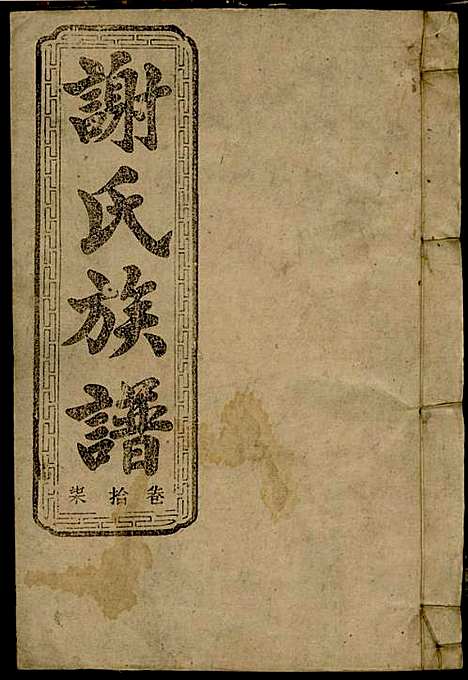 謝氏族譜
卷拾柒